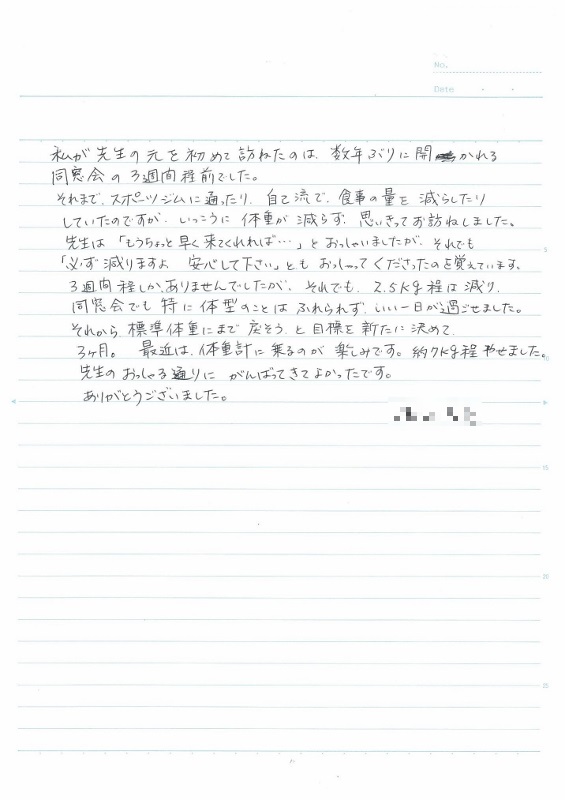 No.
Date
私が先生の元を初めて訪ねたのは、数年ぶりに開かれる
同窓会の3週間程前でした。
それまで、スポーツジムに通ったり、自己流で、食事の量を減らしたり
していたのですが、いっこうに体重が減らず、思いきってお訪ねしました。
先生は「もうちょっと早く来てくれれば…」とおっしゃいましたが、それでも
「必ず減りますよ 安心して下さい」ともおっしゃってくださったのを覚えています。
3週間程しか、ありませんでしたが、それでも、2.5kg程は減り、
同窓会でも特に体型のことはふれられず、いい一日が過ごせました。
それから、標準体重にまで戻そうと目標を新たに決めて、
3ヶ月。 最近は、体重計に乗るのが楽しみです。約7kg程やせました。
先生のおっしゃる通りにがんばってきてよかったです。
ありがとうございました。
5
10
15
20
25